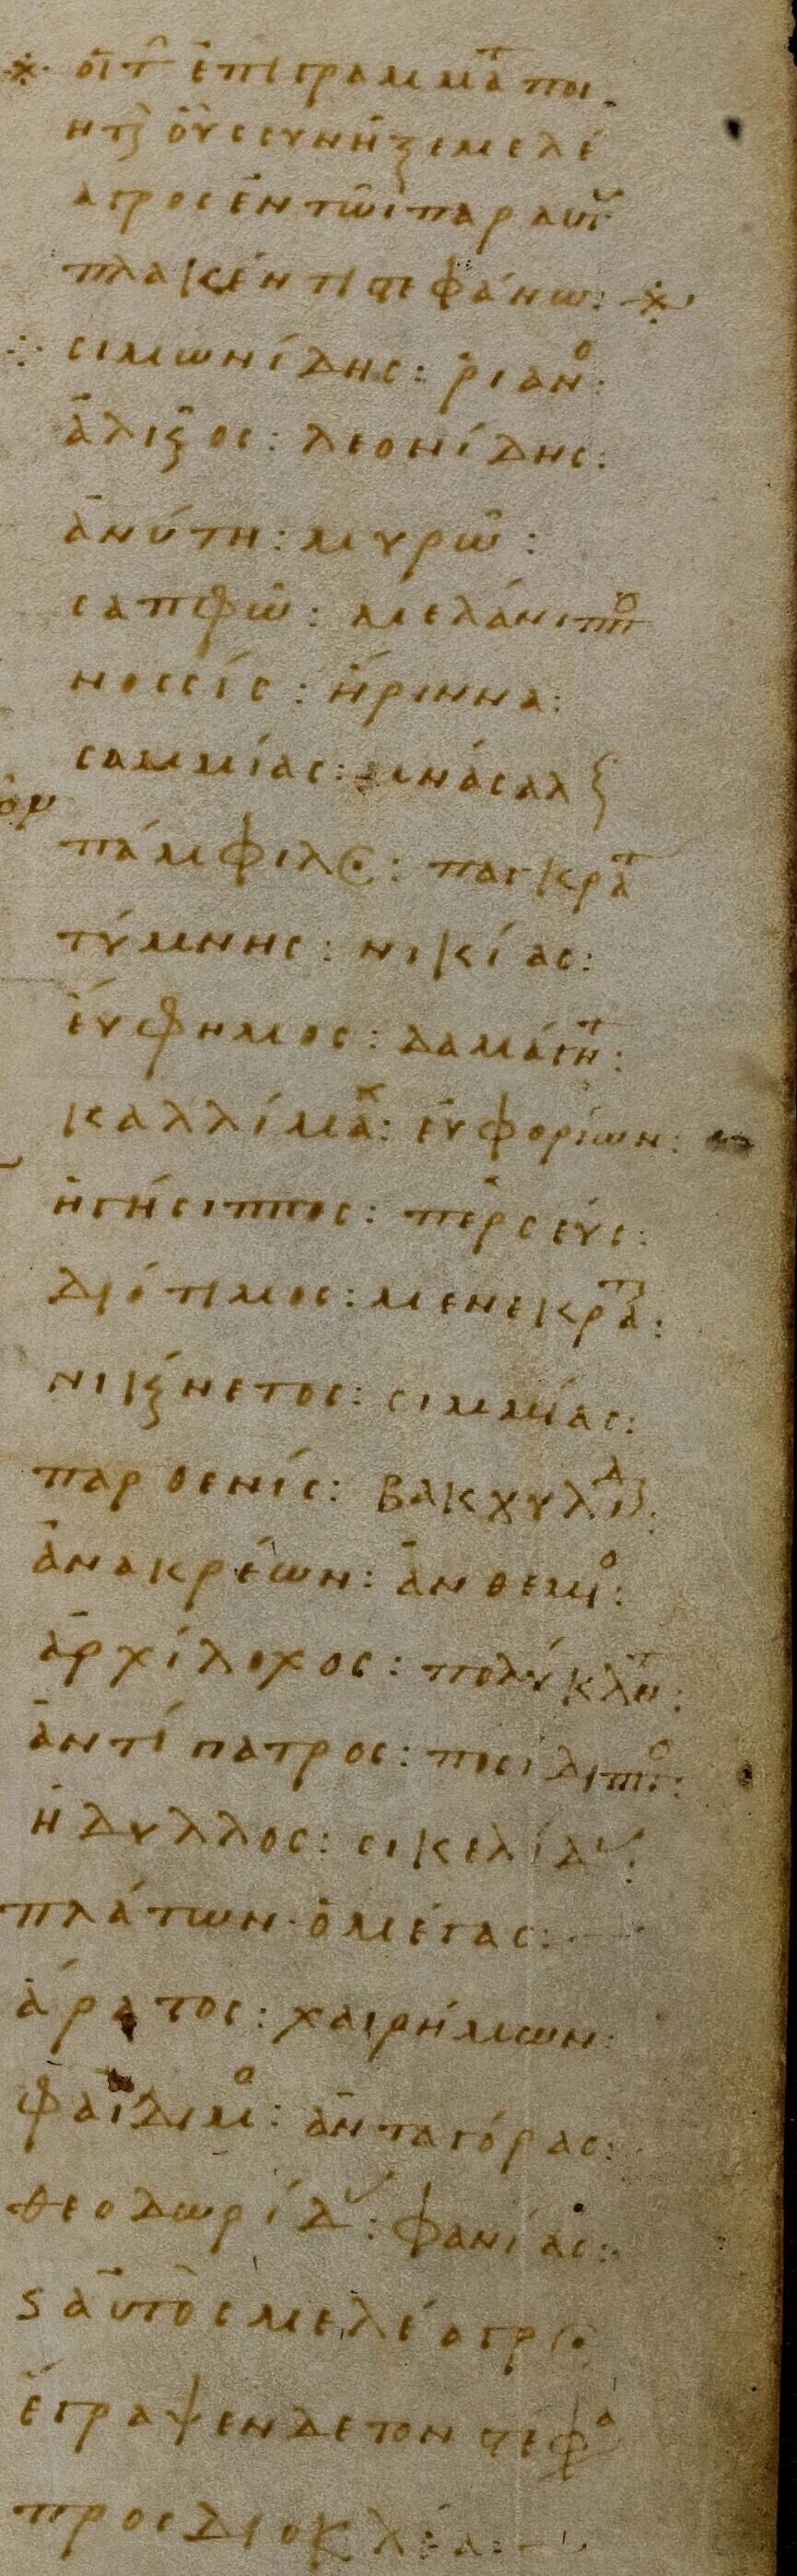 οἱ τ(ῶν) ἐπιγραμμάτ ποι
ητ(αὶ) οὓς συνῆξε μελέ
αγρος ἐν τῶι παρ αυτ
πλακέντι στεφάνω:
σιμωνίδης: ῥιανο:
ἀλκαῖος: λεονίδης:
ἀνύτη: μυρῶ:
σαπφῶ: μελάνιππο
νοσσίς: ἤριννα:
σαμμίας: μνάσαλκ
πάμφιλος: παγκρατ
τύμνης: νικίας:
ἔυφημος: δαμάγητ:
καλλίμαχ: ἐυφορίων:
ἡγήσιππος: περσεύς:
διότιμος: μενεκρατ:
νικαίνετος: σιμμίας:
παρθενίς: βακχυλίδ:
ἀνακρέων: ἀνθεμι:
ἀρχίλοχος: πολύκλητ:
ἀντίπατρος: ποσίδιππο:
ἡδυλλος: σικελίδ:
πλάτων ὁ μέγας:
ἄρατος: χαιρήμων:
φαίδιμο: ἀνταγόρας:
θεοδωρίδ: φανίας:
ϛ ἀυτὸς μελέαγρος
ἔγραψεν δε τον στέφα
προς διοκλέα: